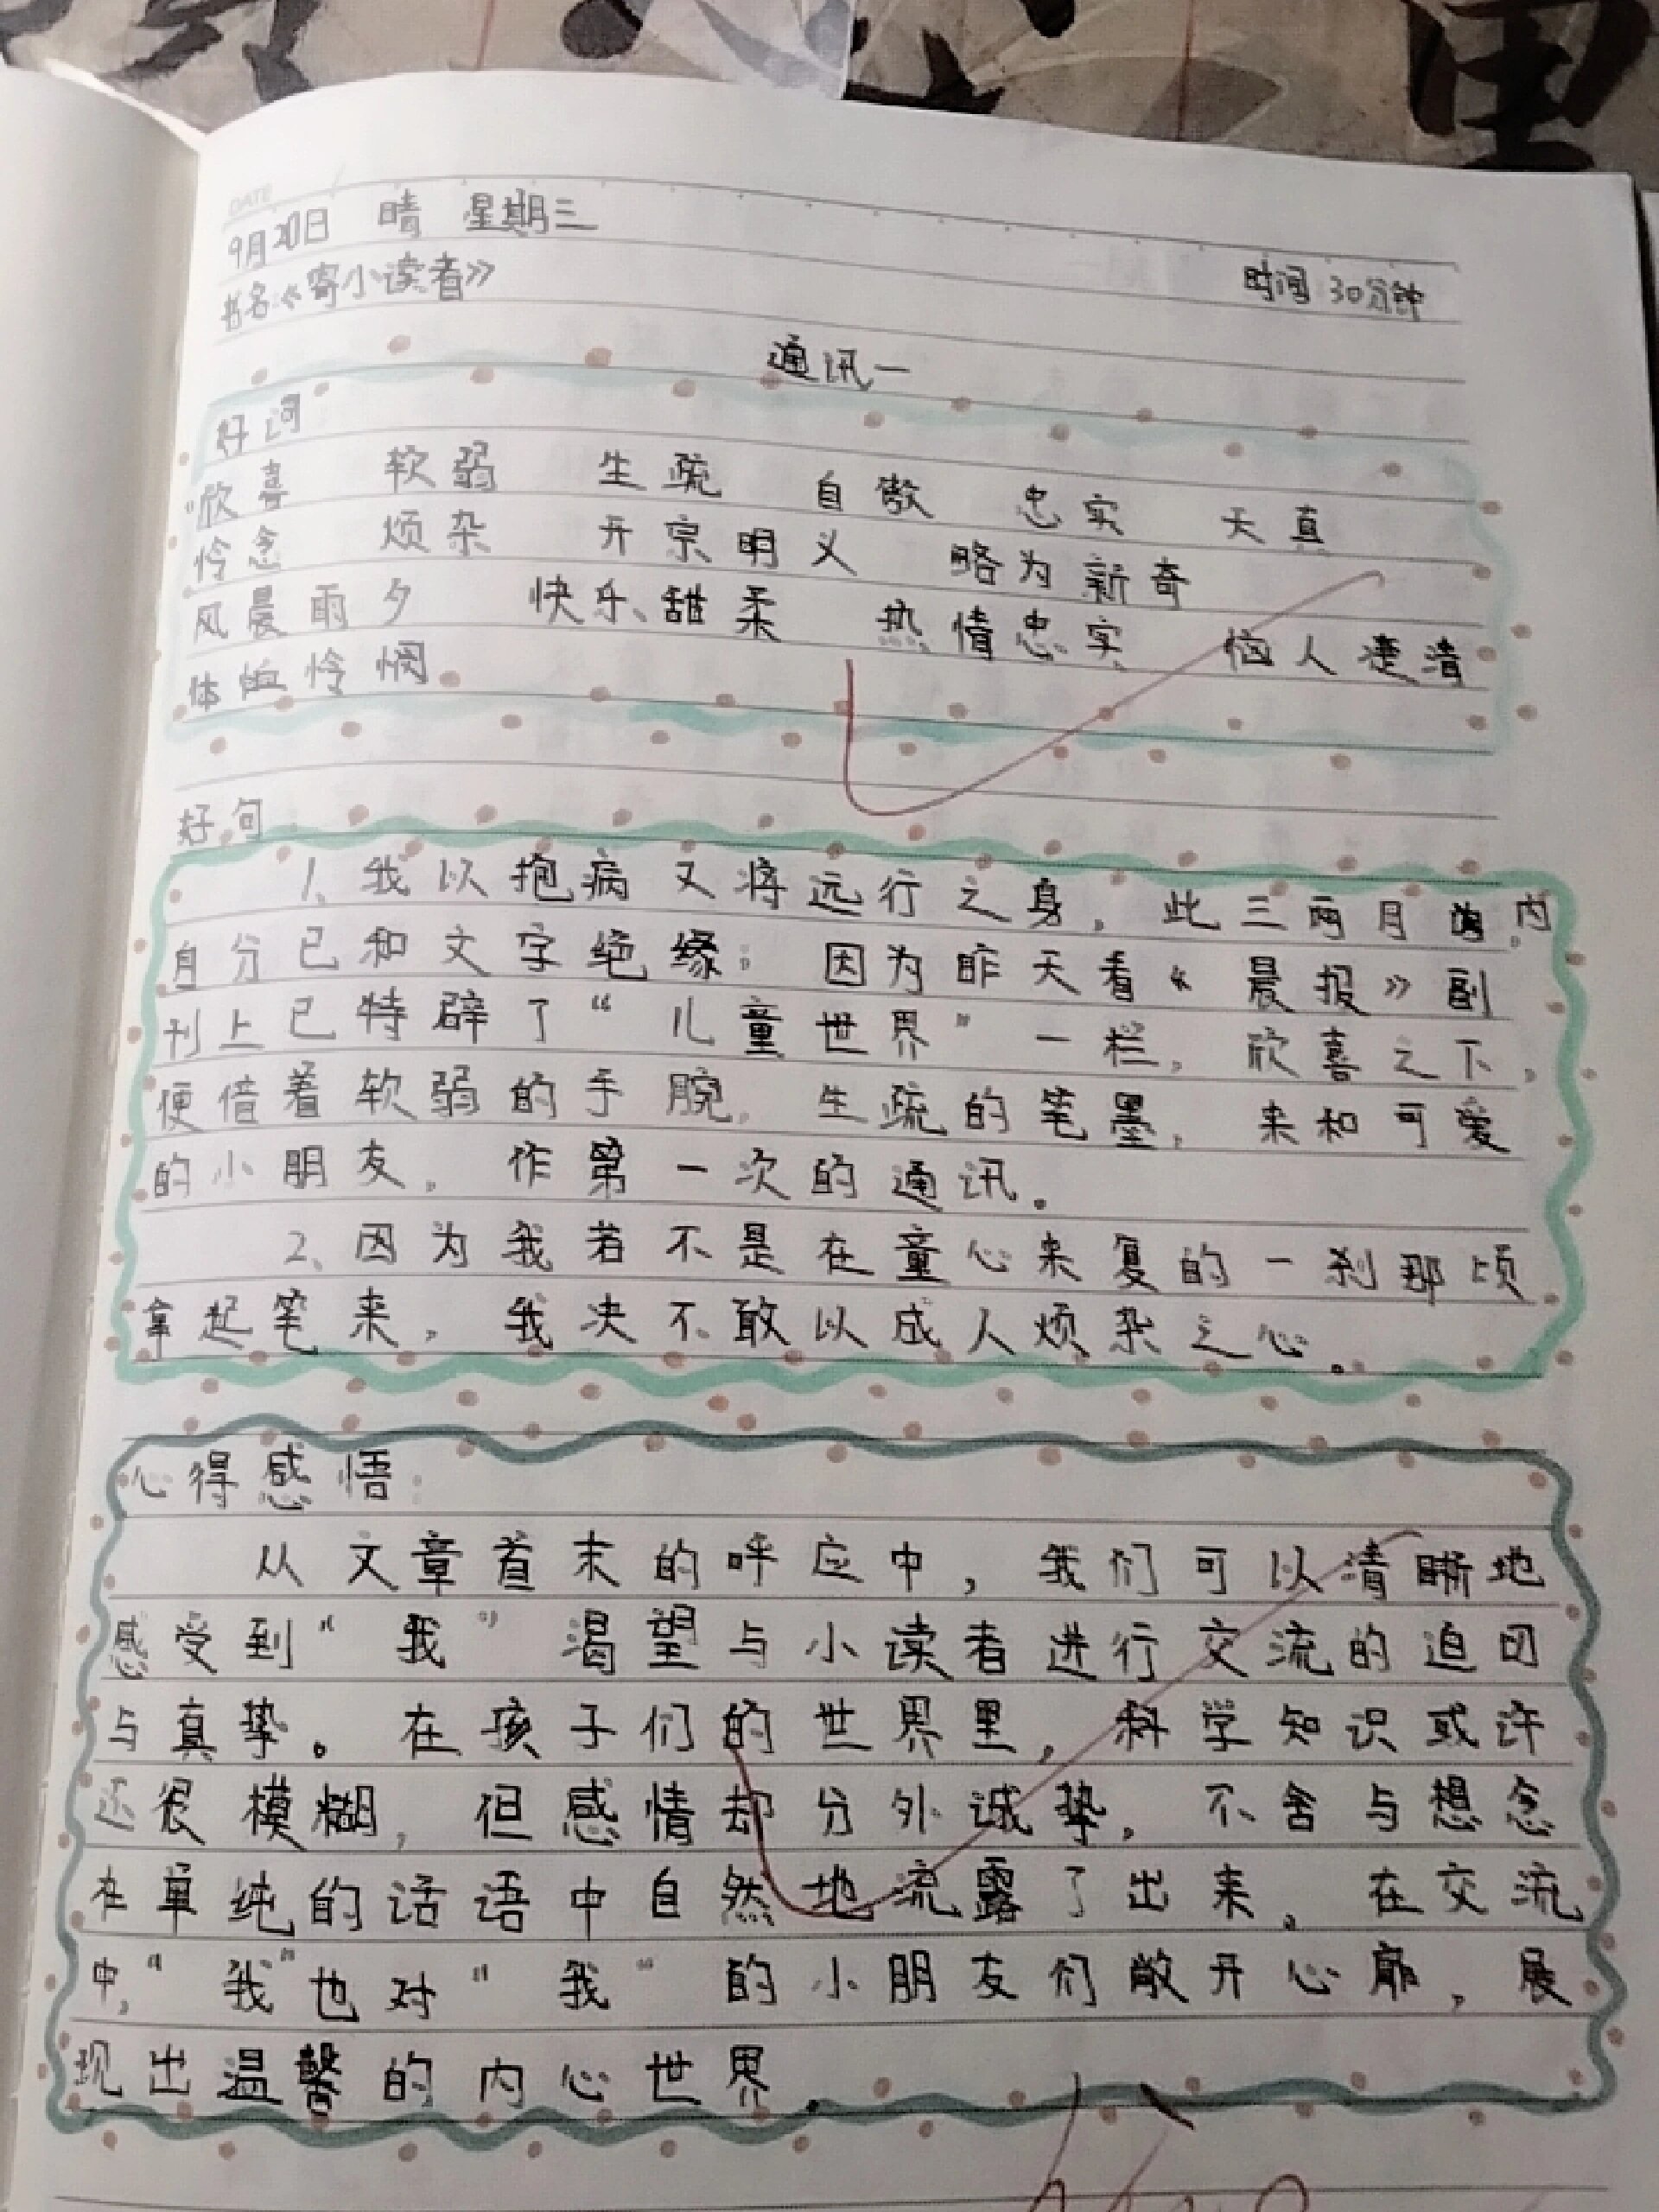 DATE
9月20日 晴 星期三
书名《寄小读者》 时间 30分钟
通讯一
好词
欣喜 软弱 生疏 自傲 忠实 天真
怜念 烦杂 开宗明义 略为新奇
风晨雨夕 快乐、甜柔 热情忠实 恼人凄清
体恤怜悯
好句
1、我以抱病又将远行之身，此三两月内，
自分已和文字绝缘；因为昨天看《晨报》副
刊上已特辟了“儿童世界”一栏，欣喜之下，
便借着软弱的手腕，生疏的笔墨，来和可爱
的小朋友，作第一次的通讯。
2、因为我若不是在童心来复的一刹那顷
拿起笔来，我决不敢以成人烦杂之心。
心得感悟：
从文章首末的呼应中，我们可以清晰地
感受到“我”渴望与小读者进行交流的迫切
与真挚。在孩子们的世界里，科学知识或许
还很模糊，但感情却分外诚挚，不舍与想念
在单纯的话语中自然地流露了出来。在交流
中，“我”也对“我”的小朋友们敞开心扉，展
现出温馨的内心世界。